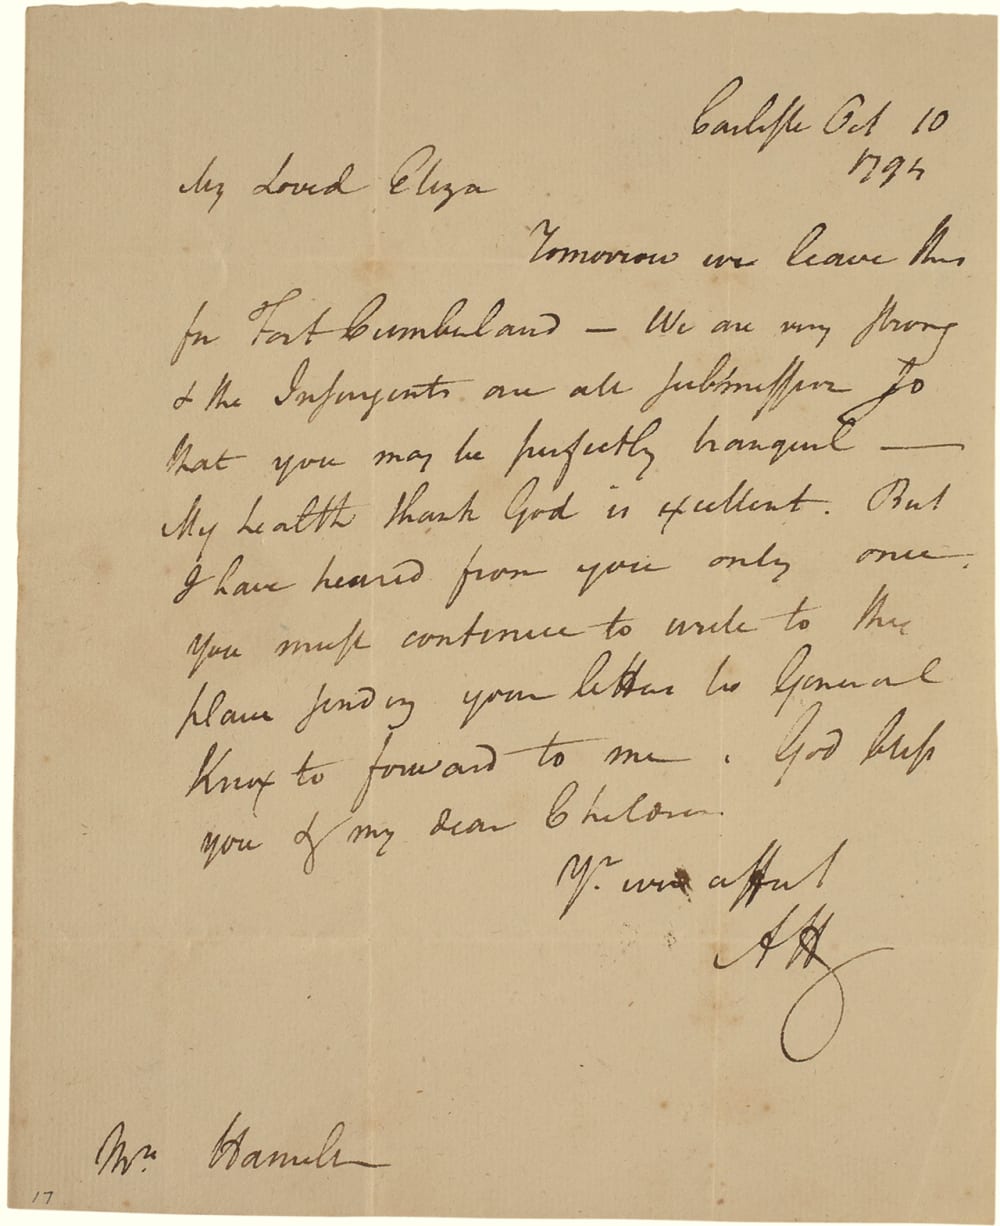 Carlisle Oct 10
1794
My Loved Eliza
Tomorrow we leave this
for Fort Cumberland — We are very strong
& the Insurgents are all submissive so
that you may be perfectly tranquil —
My health thank God is excellent. But
I have heared from you only once.
You must continue to write to this
place sending your letter to General
Knox to forward to me. God bless
you & my dear Children
Yr. ever affect
AH
Mrs. Hamilton
17